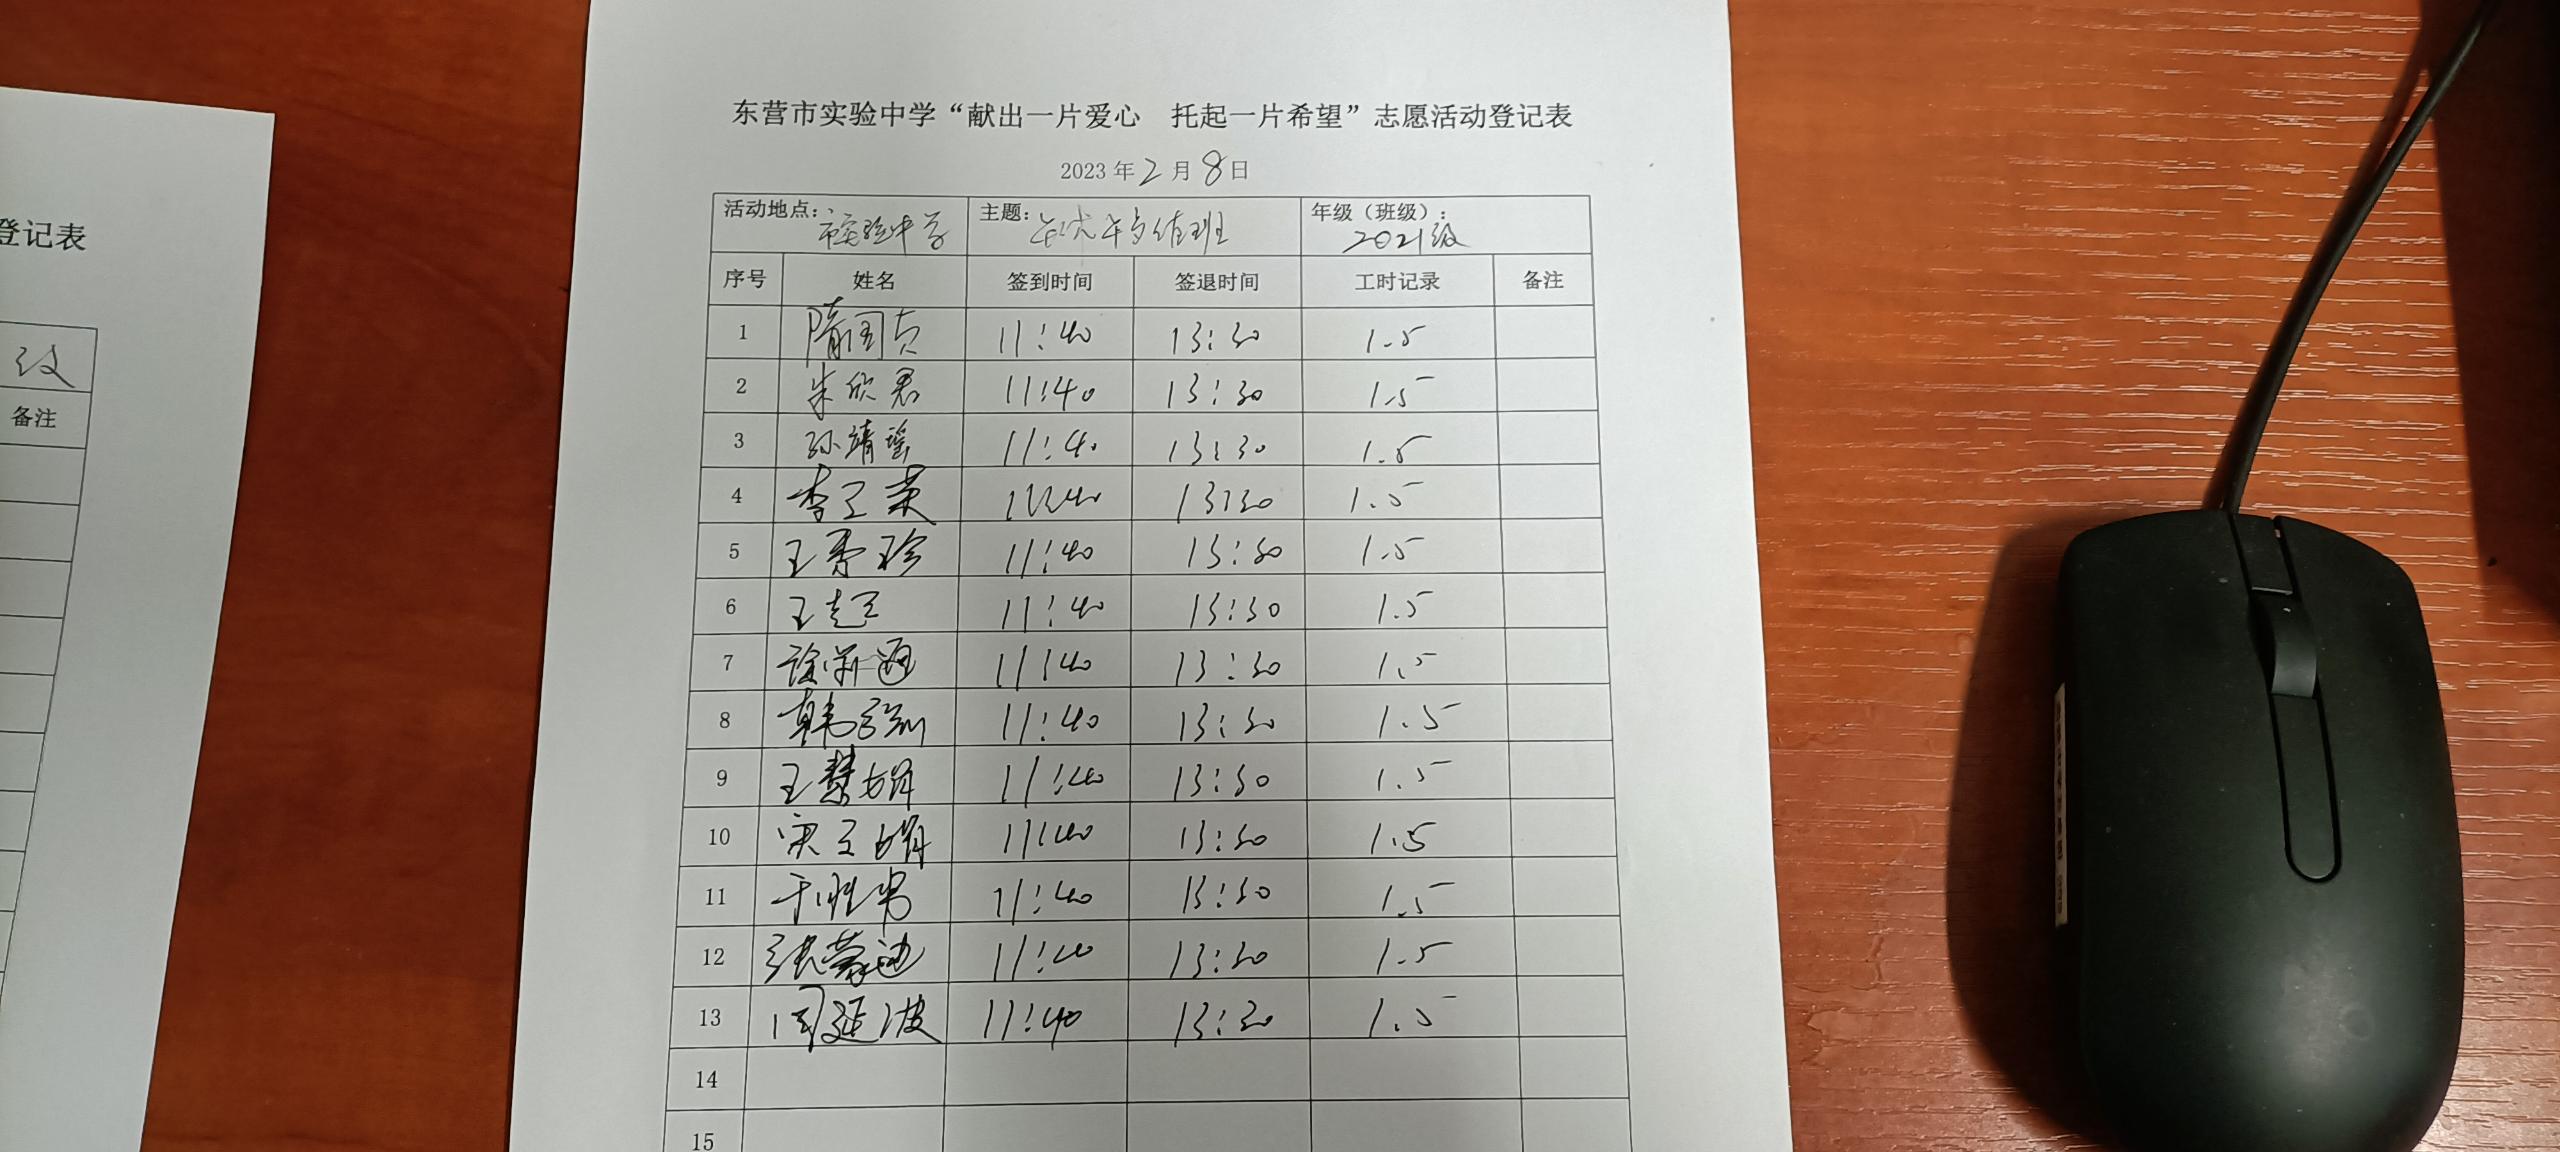 登记表
级
备注
东营市实验中学“献出一片爱心 托起一片希望”志愿活动登记表
2023年2月8日
活动地点：市实验中学 主题： 午写值班 年级（班级）：2021级
序号 姓名 签到时间 签退时间 工时记录 备注
1 隋国贞 11:40 13:30 1.5
2 朱欣君 11:40 13:30 1.5
3 孙靖瑶 11:40 13:30 1.5
4 李 11:40 13:30 1.5
5 王秀珍 11:40 13:30 1.5
6 王 11:40 13:30 1.5
7 徐新 11:40 13:30 1.5
8 韩 11:40 13:30 1.5
9 王慧娟 11:40 13:30 1.5
10 宋 娟 11:40 13:30 1.5
11 于胜男 11:40 13:30 1.5
12 张蒙迪 11:40 13:30 1.5
13 周延波 11:40 13:30 1.5
14
15